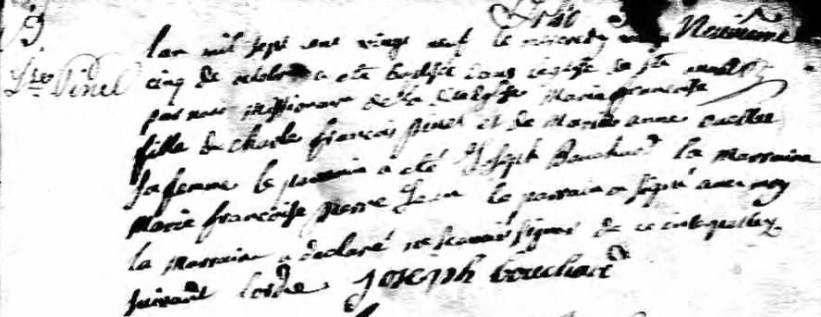 Pinel
lan mil sept cent vingt neuf le mercredy
cinq de octobre a eté batisée dans leglise de ste
par nous missionaire de la Marie francoise
fille de charle françois pinel et de Marie anne
sa femme le parrain a eté Joseph Bouchard la Marraine
Marie françoise pierre Jean le parrain a signé avec moy
la Marraine a declaré ne scavoir signer de ce interpellez
suivant lordre Joseph bouchard